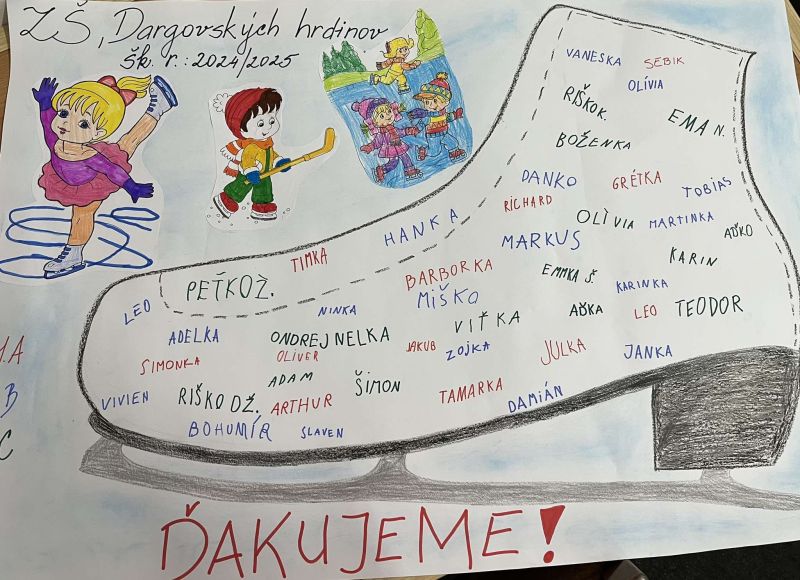 ZŠ, Dargovských hrdinov
šk. r.: 2024/2025
VANESKA SEBIK
OLÍVIA
RIŠKO K.
EMA N.
BOŽENKA
DANKO GRÉTKA TOBIAS
RICHARD
OLÌVIA MARTINKA
HANKA MARKUS AĎKO
TIMKA
KARIN
BARBORKA EMMKA Š. KARINKA
PEŤKO Ž. MIŠKO
LEO NINKA VIŤKA AĎKA LEO TEODOR
ADELKA ONDREJ NELKA JAKUB ZOJKA JULKA JANKA
SIMONKA OLIVER
ADAM ŠIMON
VIVIEN RIŠKO DŽ. ARTHUR TAMARKA DAMIÁN
BOHUMÍR SLAVEN
.A
B
C
ĎAKUJEME!